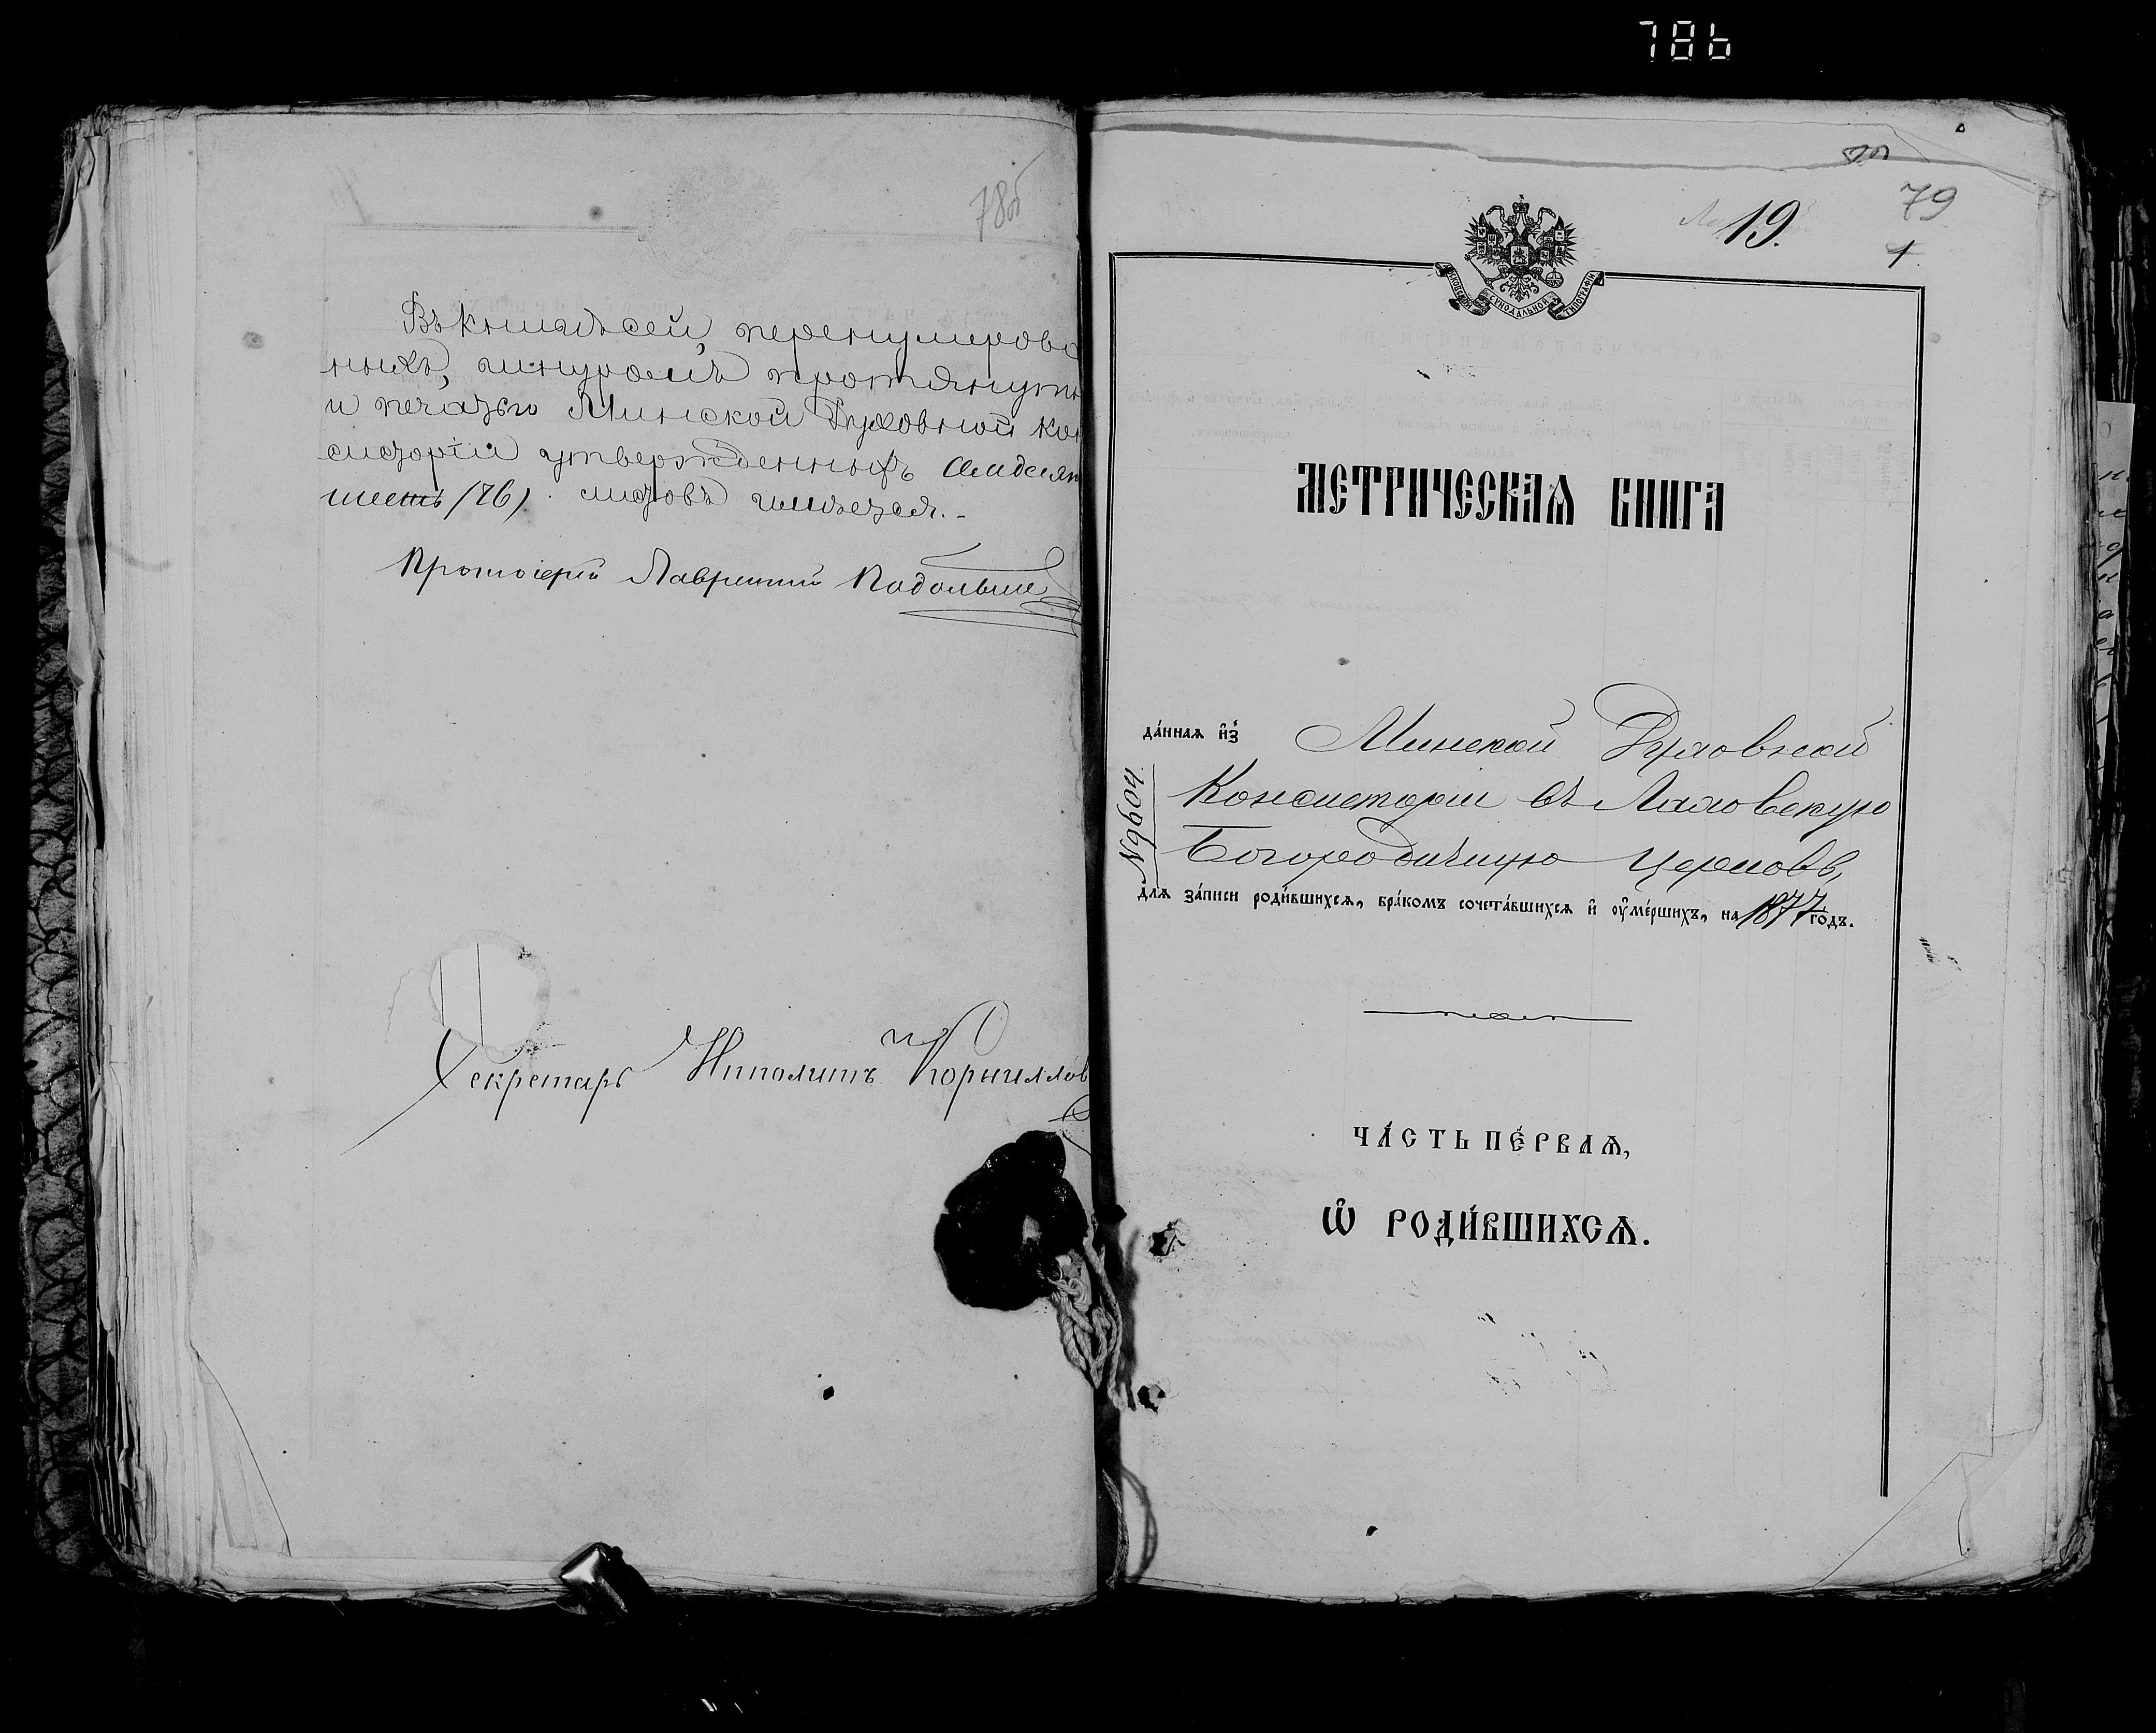 78б
78об
Въ книгѣ сей, перенумерова
ныхъ, шнуромъ протянуты
и печатью Минской Духовной Кон
систоріи утвержденныхъ семдесят
шесть (76) листовъ имѣется.-
Протоіерей Лаврентій Подольше
Секретарь Ипполитъ Корнилов
79
19.
1
МОСКОВСКОЙ СѴНОДАЛЬНОЙ ТИПОГРАФІИ
МЕТРИЧЕСКАѦ КНИГА
да́ннаѧ и҆з̾ Минской Духовной
№9604
Консисторіи въ Ляховскую
Богородичную церковь,
длѧ за́писи роди́вшихсѧ, бра́комъ сочета́вшихсѧ и҆ ᲂу҆ме́ршихъ, на 1877 го́дъ.
ЧА́СТЬ ПЕ́РВАѦ,
Ѽ РОДИ́ВШИХСѦ.